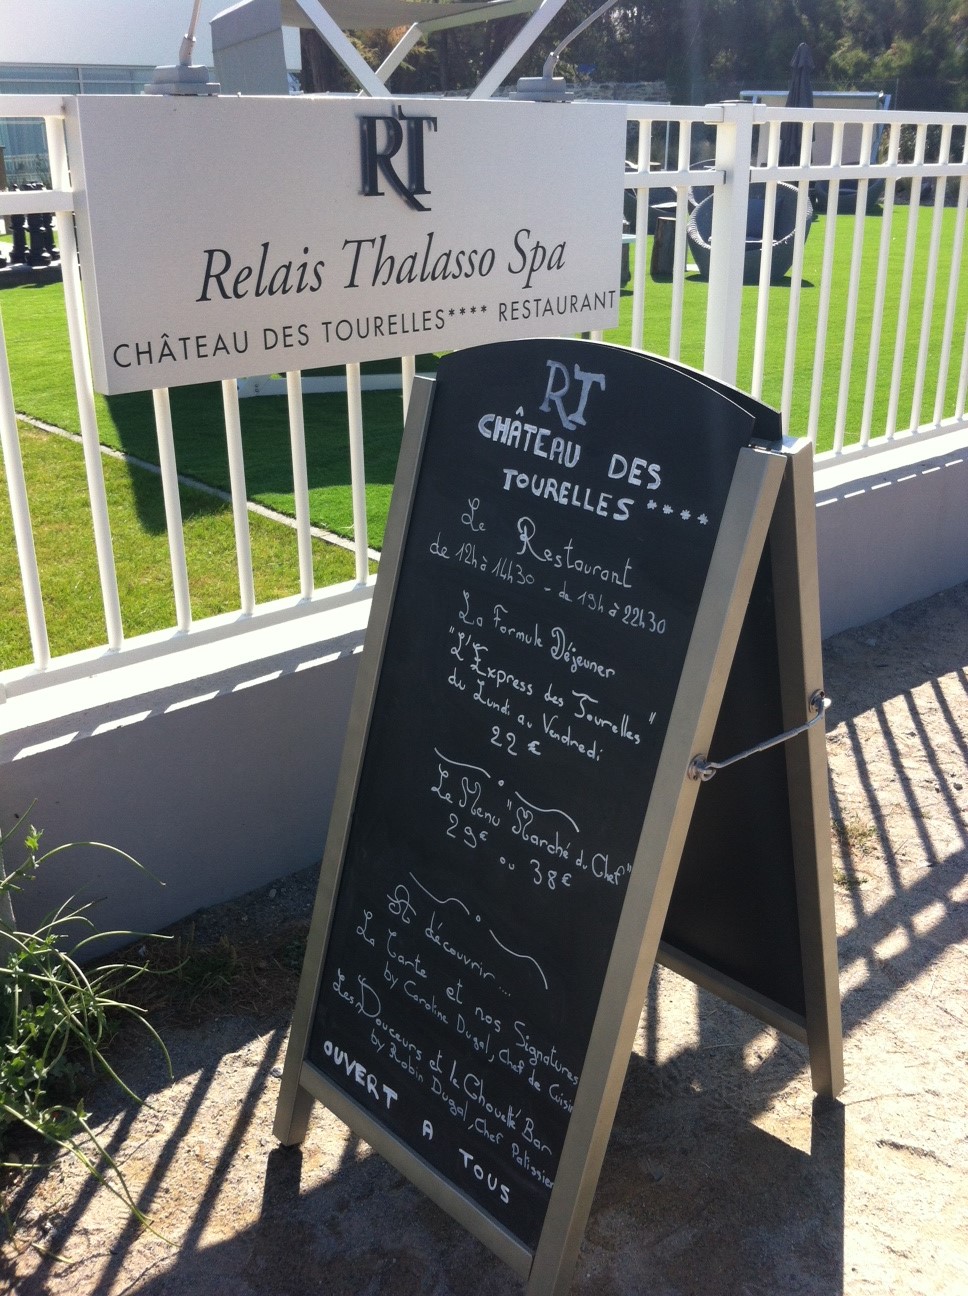 RT
Relais Thalasso Spa
CHÂTEAU DES TOURELLES**** RESTAURANT
RT
CHÂTEAU DES
TOURELLES ****
Le Restaurant
de 12h à 14h30 - de 19h à 22h30
La Formule Déjeuner
"L'Express des Tourelles"
du Lundi au Vendredi
22 €
Le Menu "Marché du Chef"
29€ ou 38€
A découvrir ....
La Carte et nos Signatures
by Caroline Dugal, Chef de Cuisin
Les Douceurs et le Chouette Bar
by Robin Dugal, Chef Patissier
OUVERT A TOUS